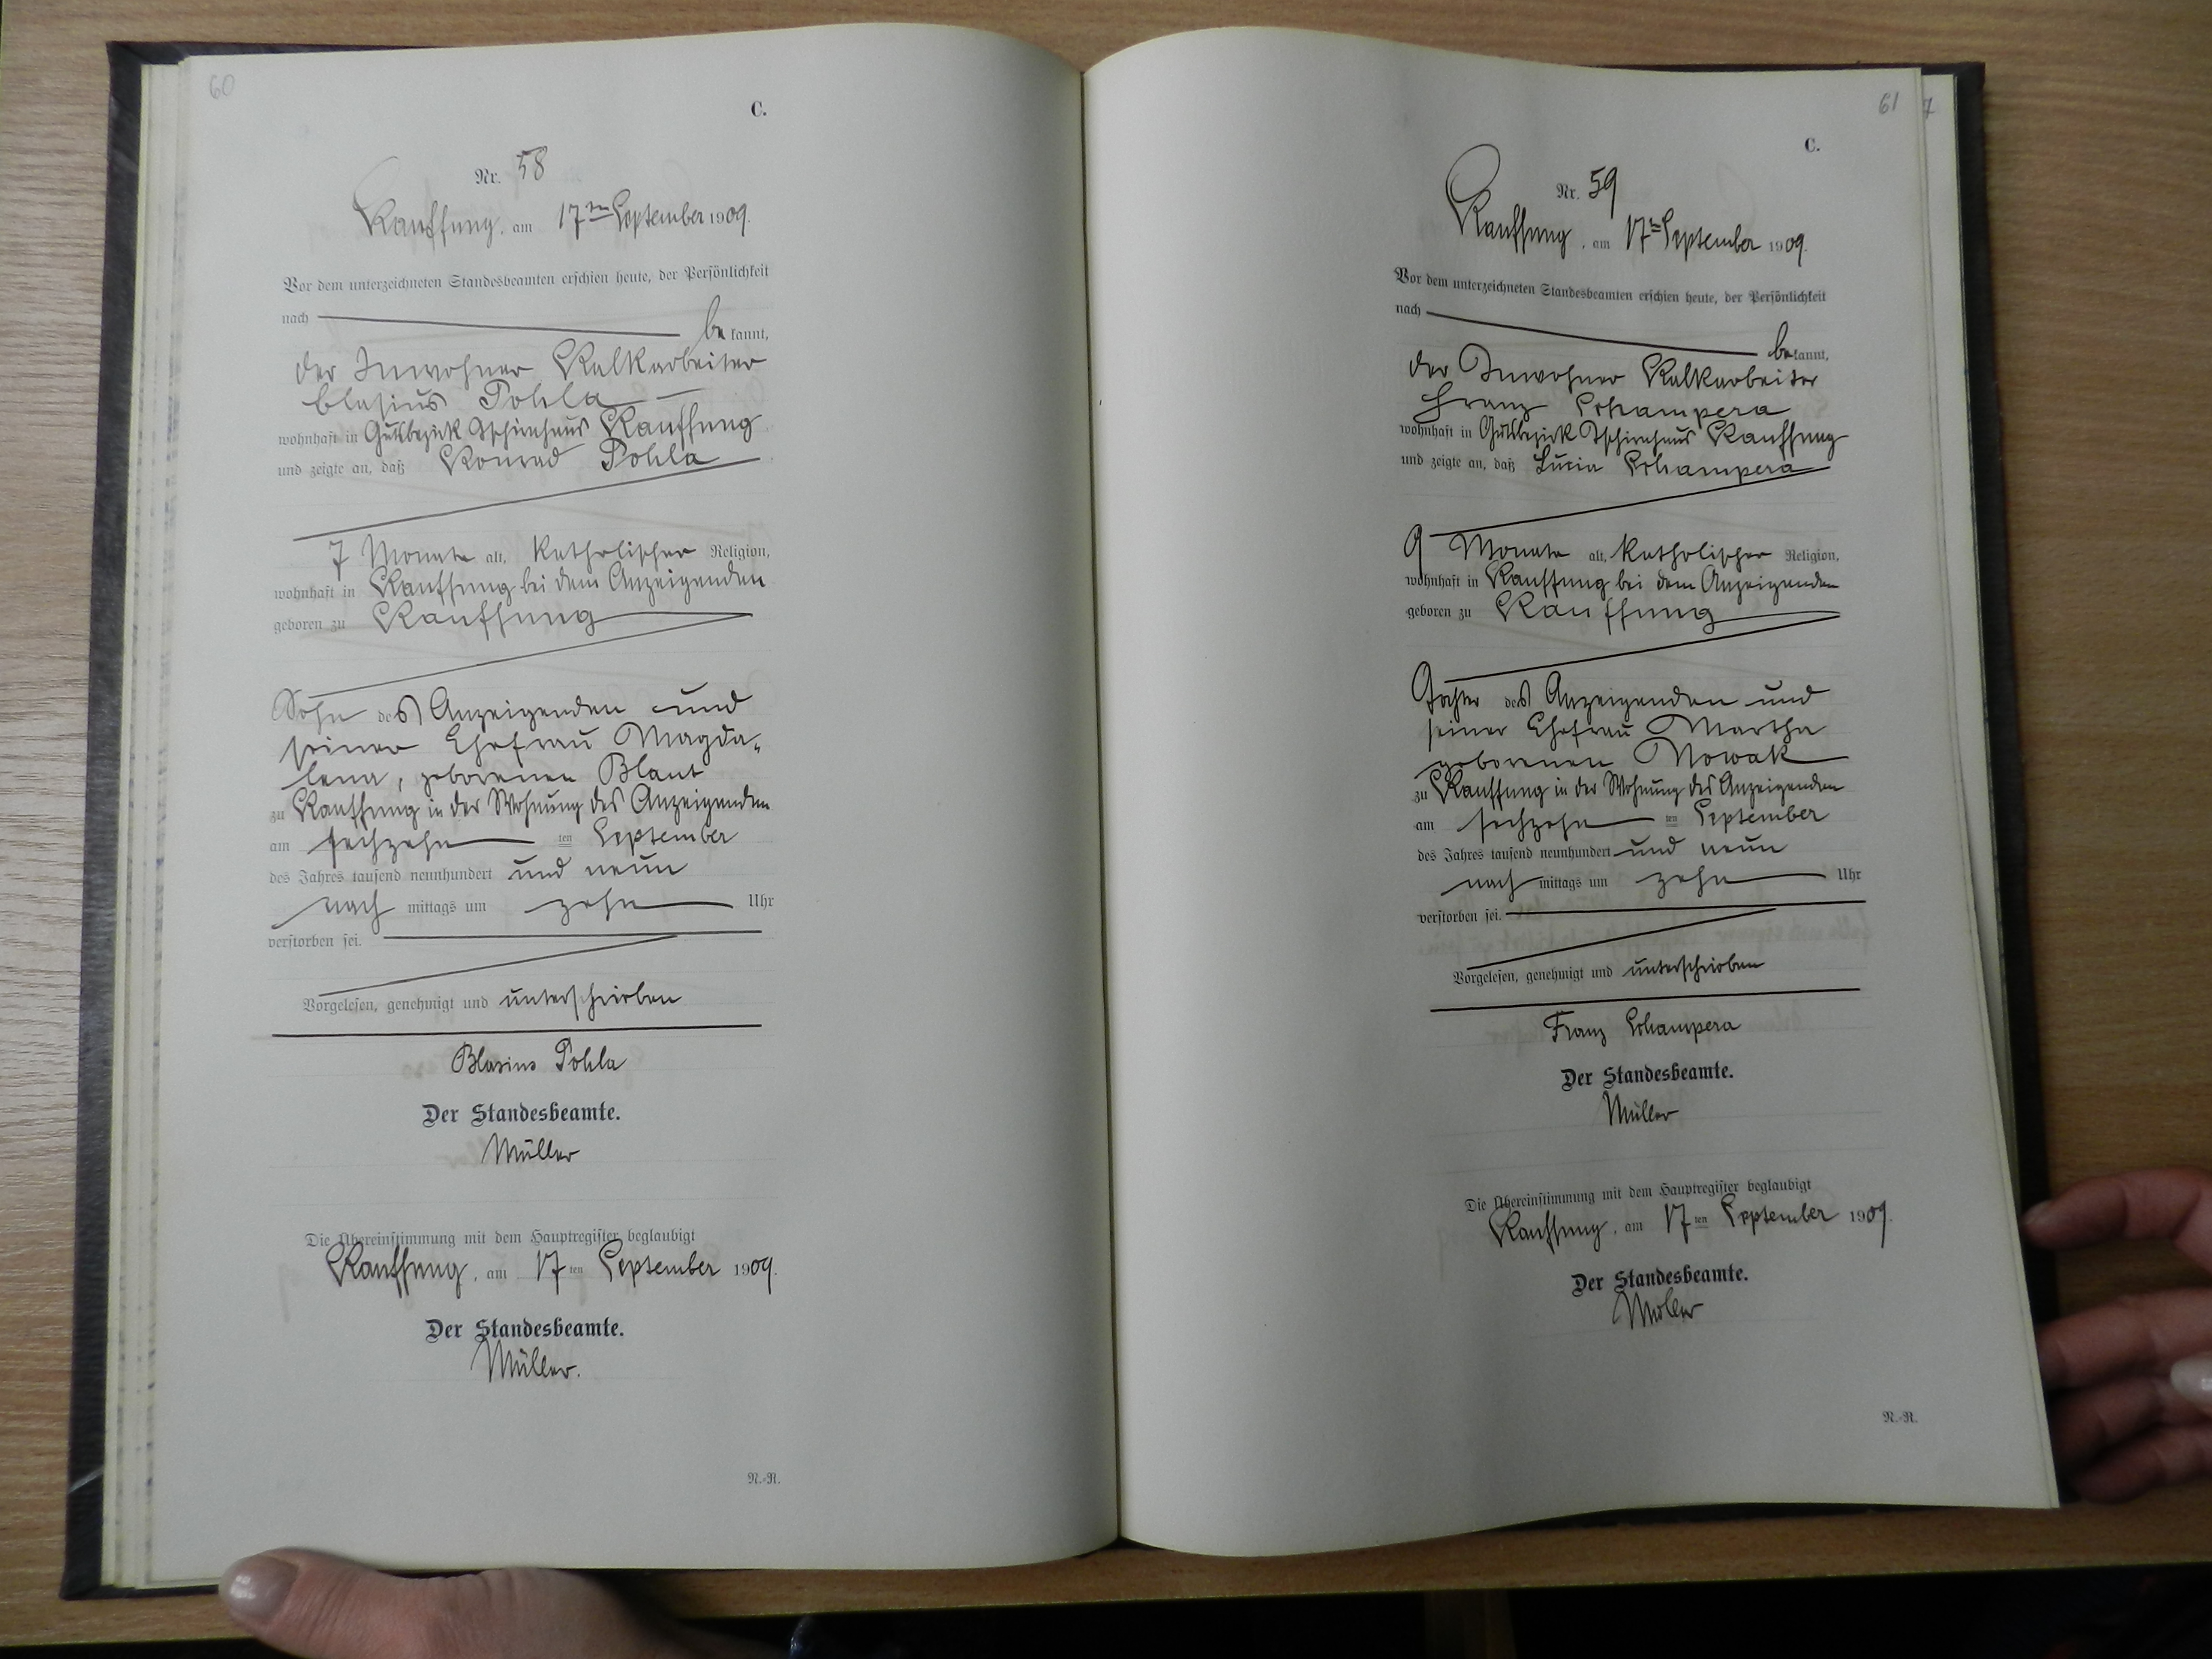 60
C.
Nr. 58
Kauffung, am 17ten September 1909.
Vor dem unterzeichneten Standesbeamten erschien heute, der Persönlichkeit
nach
bekannt,
der Inwohner Kalkarbeiter
Blasius Pohla
wohnhaft in Gutsbezirk Tschirnhaus Kauffung
und zeigte an, daß Konrad Pohla
7 Monate alt, katholischer Religion,
wohnhaft in Kauffung bei dem Anzeigenden
geboren zu Kauffung
Sohn des Anzeigenden und
seiner Ehefrau Magda-
lena, geborenen Blaut
zu Kauffung in der Wohnung des Anzeigenden
am sechzehn ten September
des Jahres tausend neunhundert und neun
nach mittags um zehn Uhr
verstorben sei.
Vorgelesen, genehmigt und unterschrieben
Blasius Pohla
Der Standesbeamte.
Müller
Die Übereinstimmung mit dem Hauptregister beglaubigt
Kauffung, am 17 ten September 1909.
Der Standesbeamte.
Müller.
N.-R.
61
7
C.
Nr. 59
Kauffung, am 17ten September 1909.
Vor dem unterzeichneten Standesbeamten erschien heute, der Persönlichkeit
nach
bekannt,
der Inwohner Kalkarbeiter
Franz Schampera
wohnhaft in Gutsbezirk Tschirnhaus Kauffung
und zeigte an, daß Lucia Schampera
9 Monate alt, katholischer Religion,
wohnhaft in Kauffung bei dem Anzeigenden
geboren zu Kauffung
Tochter des Anzeigenden und
seiner Ehefrau Martha
geborenen Nowak
zu Kauffung in der Wohnung des Anzeigenden
am sechzehn ten September
des Jahres tausend neunhundert und neun
nach mittags um zehn Uhr
verstorben sei.
Vorgelesen, genehmigt und unterschrieben
Franz Schampera
Der Standesbeamte.
Müller
Die Übereinstimmung mit dem Hauptregister beglaubigt
Kauffung, am 17 ten September 1909.
Der Standesbeamte.
Müller
N.-R.